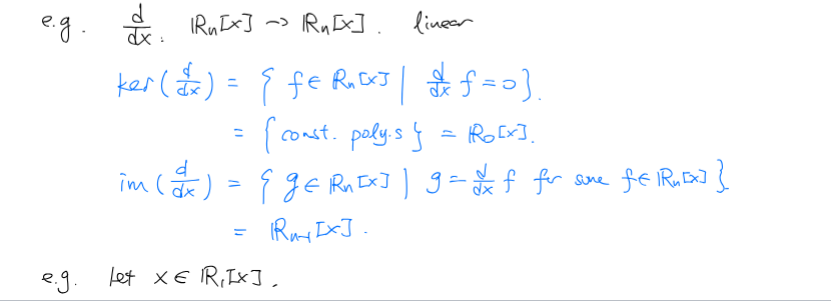 e.g. d/dx : ℝn[x] -> ℝn[x]. linear
ker(d/dx) = { f ∈ ℝn[x] | d/dx f = 0 }.
= { const. poly.s } = ℝ0[x].
im(d/dx) = { g ∈ ℝn[x] | g = d/dx f for some f ∈ ℝn[x] }
= ℝn-1[x].
e.g. let x ∈ ℝ1[x],